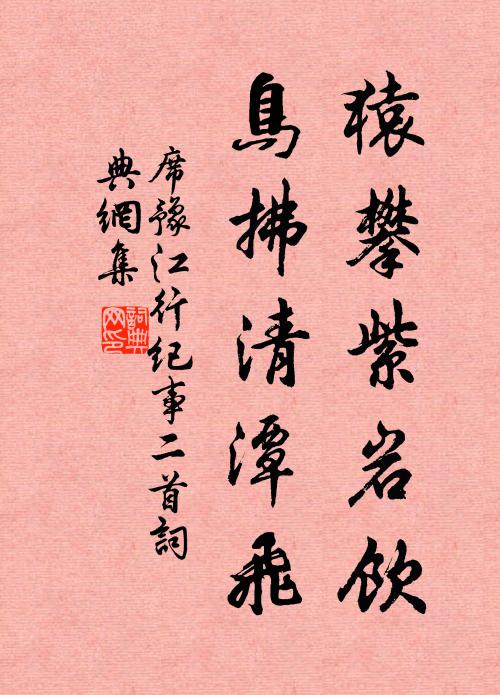 猿攀紫岩飲
鳥拂清潭飛
席豫江行紀事二首詞
典網集
詞典網印